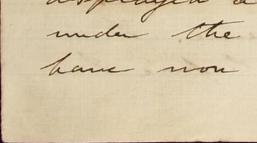 displayed a
under the
have now